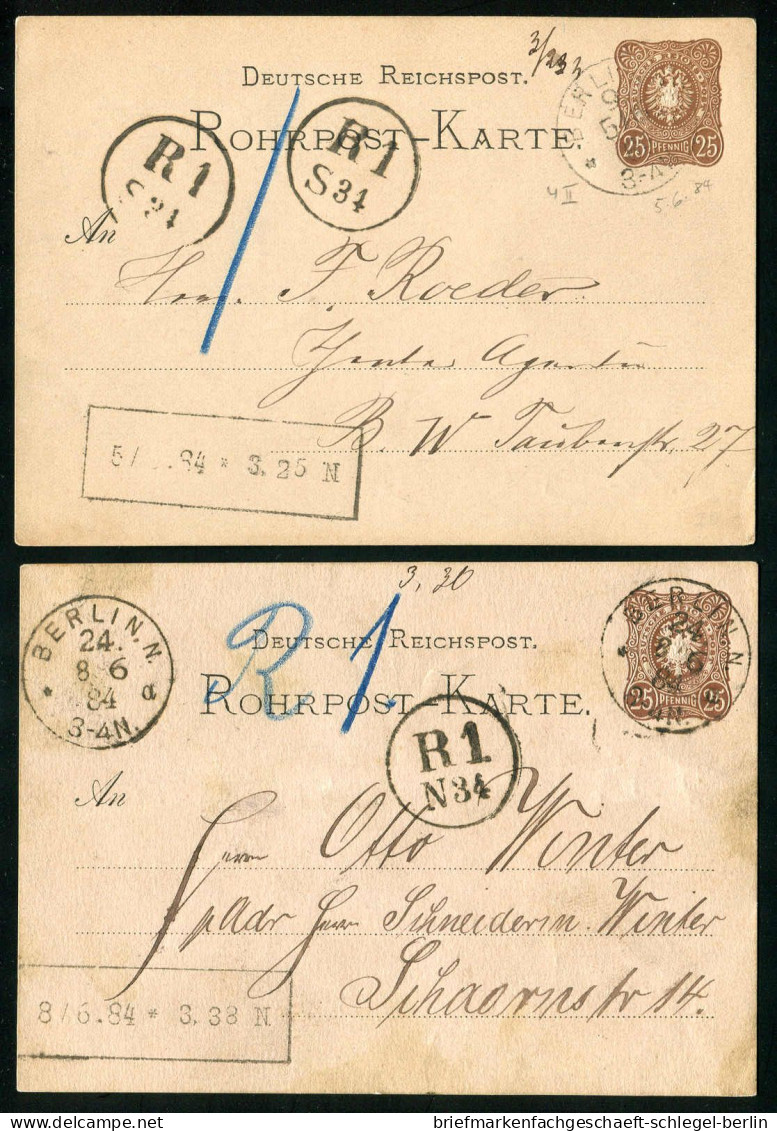 3/233
DEUTSCHE REICHSPOST.
ROHRPOST-KARTE.
BERLIN
3-4
25 PFENNIG 25
4 II
5.6.84
R1
S34
R1
S34
An
Herrn F. Roeder
Agentur
B. W Taubenstr. 27
5/6.84 * 3.25 N
3,30
BERLIN. N.
24.
8 6
84
a
3-4N.
DEUTSCHE REICHSPOST.
ROHRPOST-KARTE.
R 1.
BERLIN. N
24
8 6
84
4N.
25 PFENNIG 25
R1
N34
An
Herrn Otto Winter
p Adr Herrn Schneiderm. Winter
Schaornstr 14.
8/6.84 * 3.38 N
delcampe.net
briefmarkenfachgeschaeft-schlegel-berlin